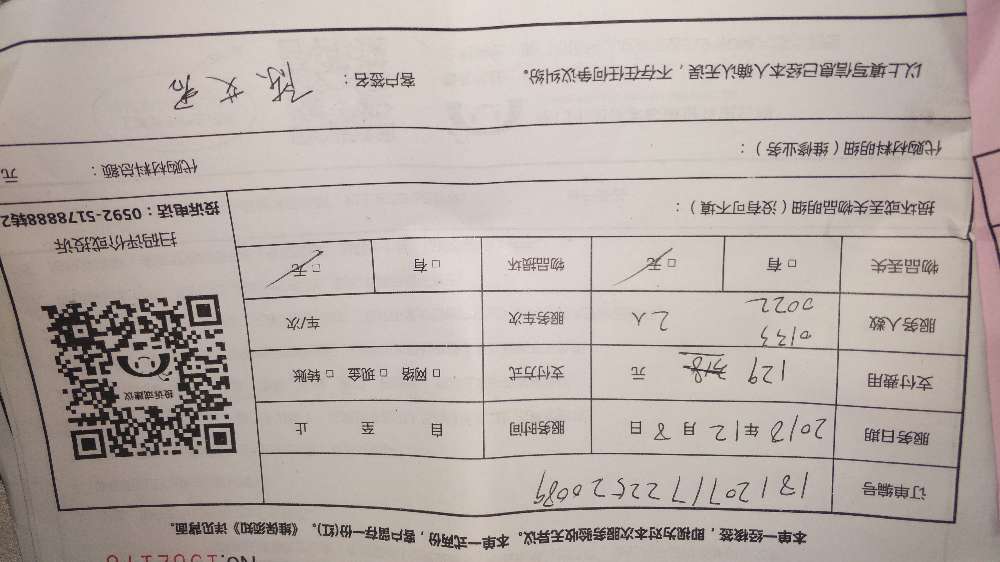 本单一经核签，即视为对本次服务验收无异议。本单一式两份，客户留存一份(红)。《维保须知》详见背面。
订单编号 181207172252008
服务日期 2018年12月8日 服务时间 自 至 止
支付费用 129 元 支付方式 □网络 □现金 □转账
服务人数 0133 0022 2人 服务车次 车/次
物品丢失 □有 □无 物品损坏 □有 □无
投诉或建议
扫码评价或投诉
投诉电话：0592-5178888转2
损坏或丢失物品明细（没有可不填）：
代购材料明细（维修业务）：
代购材料总额： 元
以上填写信息已经本人确认无误，不存在任何争议纠纷。 客户签名：